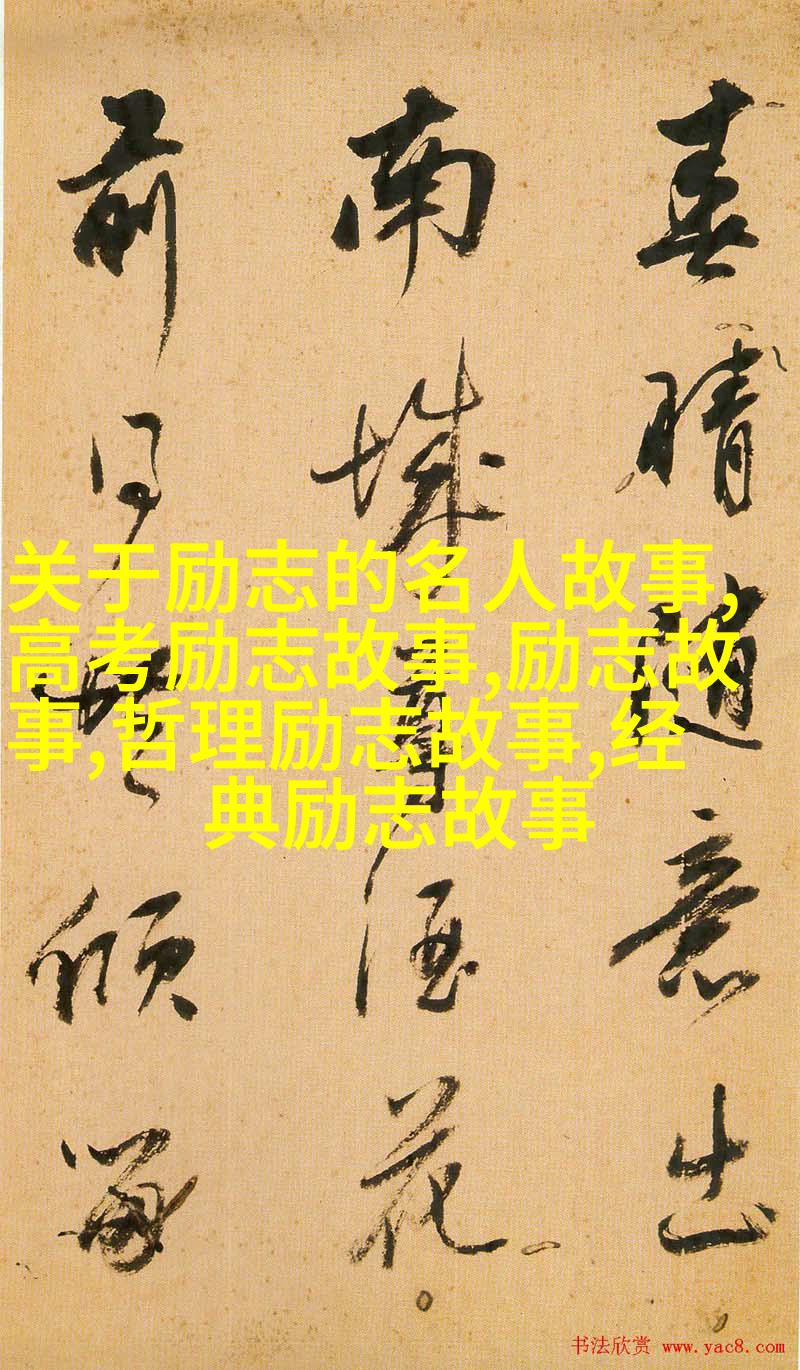 春晴意出
南城酒花
前傾
关于励志的名人故事,
高考励志故事,励志故
事,哲理励志故事,经
典励志故事
书法欣赏 www.yac8.com